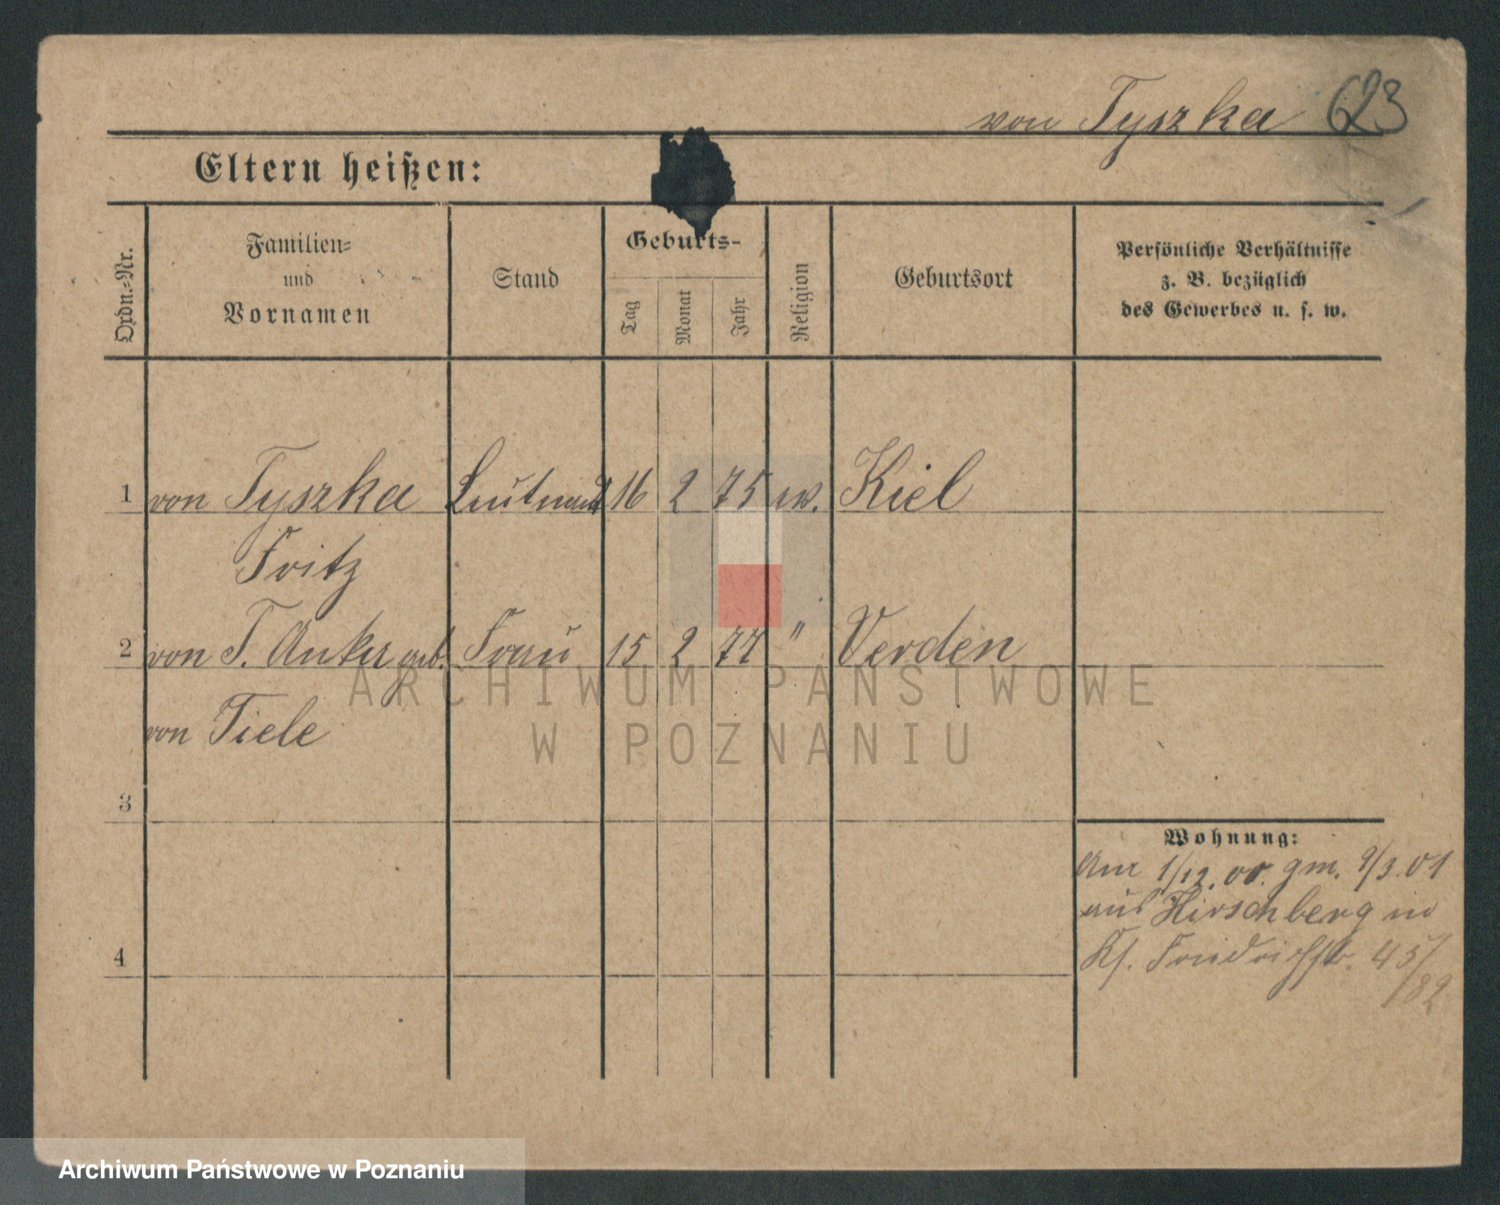 von Tyszka 623
Eltern heißen:
Ordn.-Nr.
Familien-
und
Vornamen
Stand
Geburts-
Tag
Monat
Jahr
Religion
Geburtsort
Persönliche Verhältnisse
z. B. bezüglich
des Gewerbes u. s. w.
1 von Tyszka Leutnant 16 2 75 ev. Kiel
Fritz
2 von T. geb. Frau 15 2 77 " Verden
von Tiele
3
4
Wohnung:
Am 1/12.00. gm. 9/3.01
aus Hirschberg in
Kf. Friedrichstr. 45/
/82
ARCHIWUM PAŃSTWOWE
W POZNANIU
Archiwum Państwowe w Poznaniu